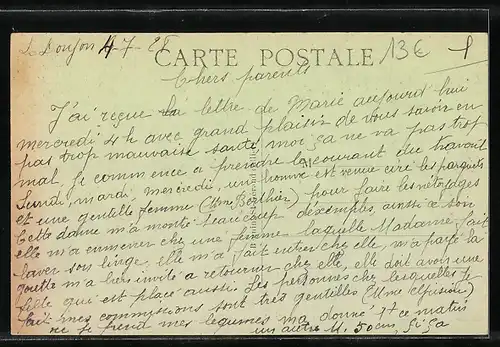 Le Donjon 4-7-28
CARTE POSTALE
13€
Chers parents
J'ai reçue la lettre de Marie aujourd hui
mercredi 4 h avec grand plaisir de vous savoir en
pas trop mauvaise santé, moi, ça ne va pas trop
mal. Je commence a prendre le courant du travail
Lundi, mardi, mercredi, un homme est venue ciré les parquets
et une gentille femme (Mme Berthier) pour faire les nétoiages
Cette dame m'a montré beaucoup d'éxemples, aussi a son
elle m'a emmener che une femme laquelle Madame fait
laver son linge, elle m'a fait entrer che elle, m'a payé la
goutte m'a hers invité a retourner che elle, elle doit avoir une
fille qui est placé aussi. Les personnes che lesquelles je
fait mes commissions sont très gentilles (Mme
ou je prend mes légumes m'a donné ce matin
un autre M. 50 cm,